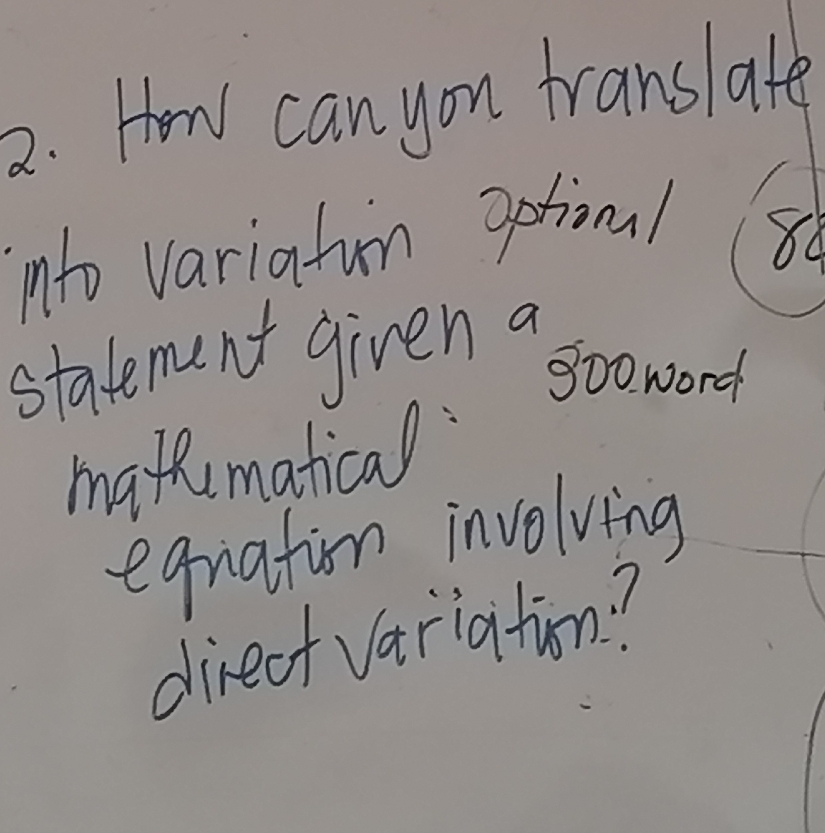 2. How can you translate
into variation optional
statement given a
word
mathematical
equation involving
direct variation?